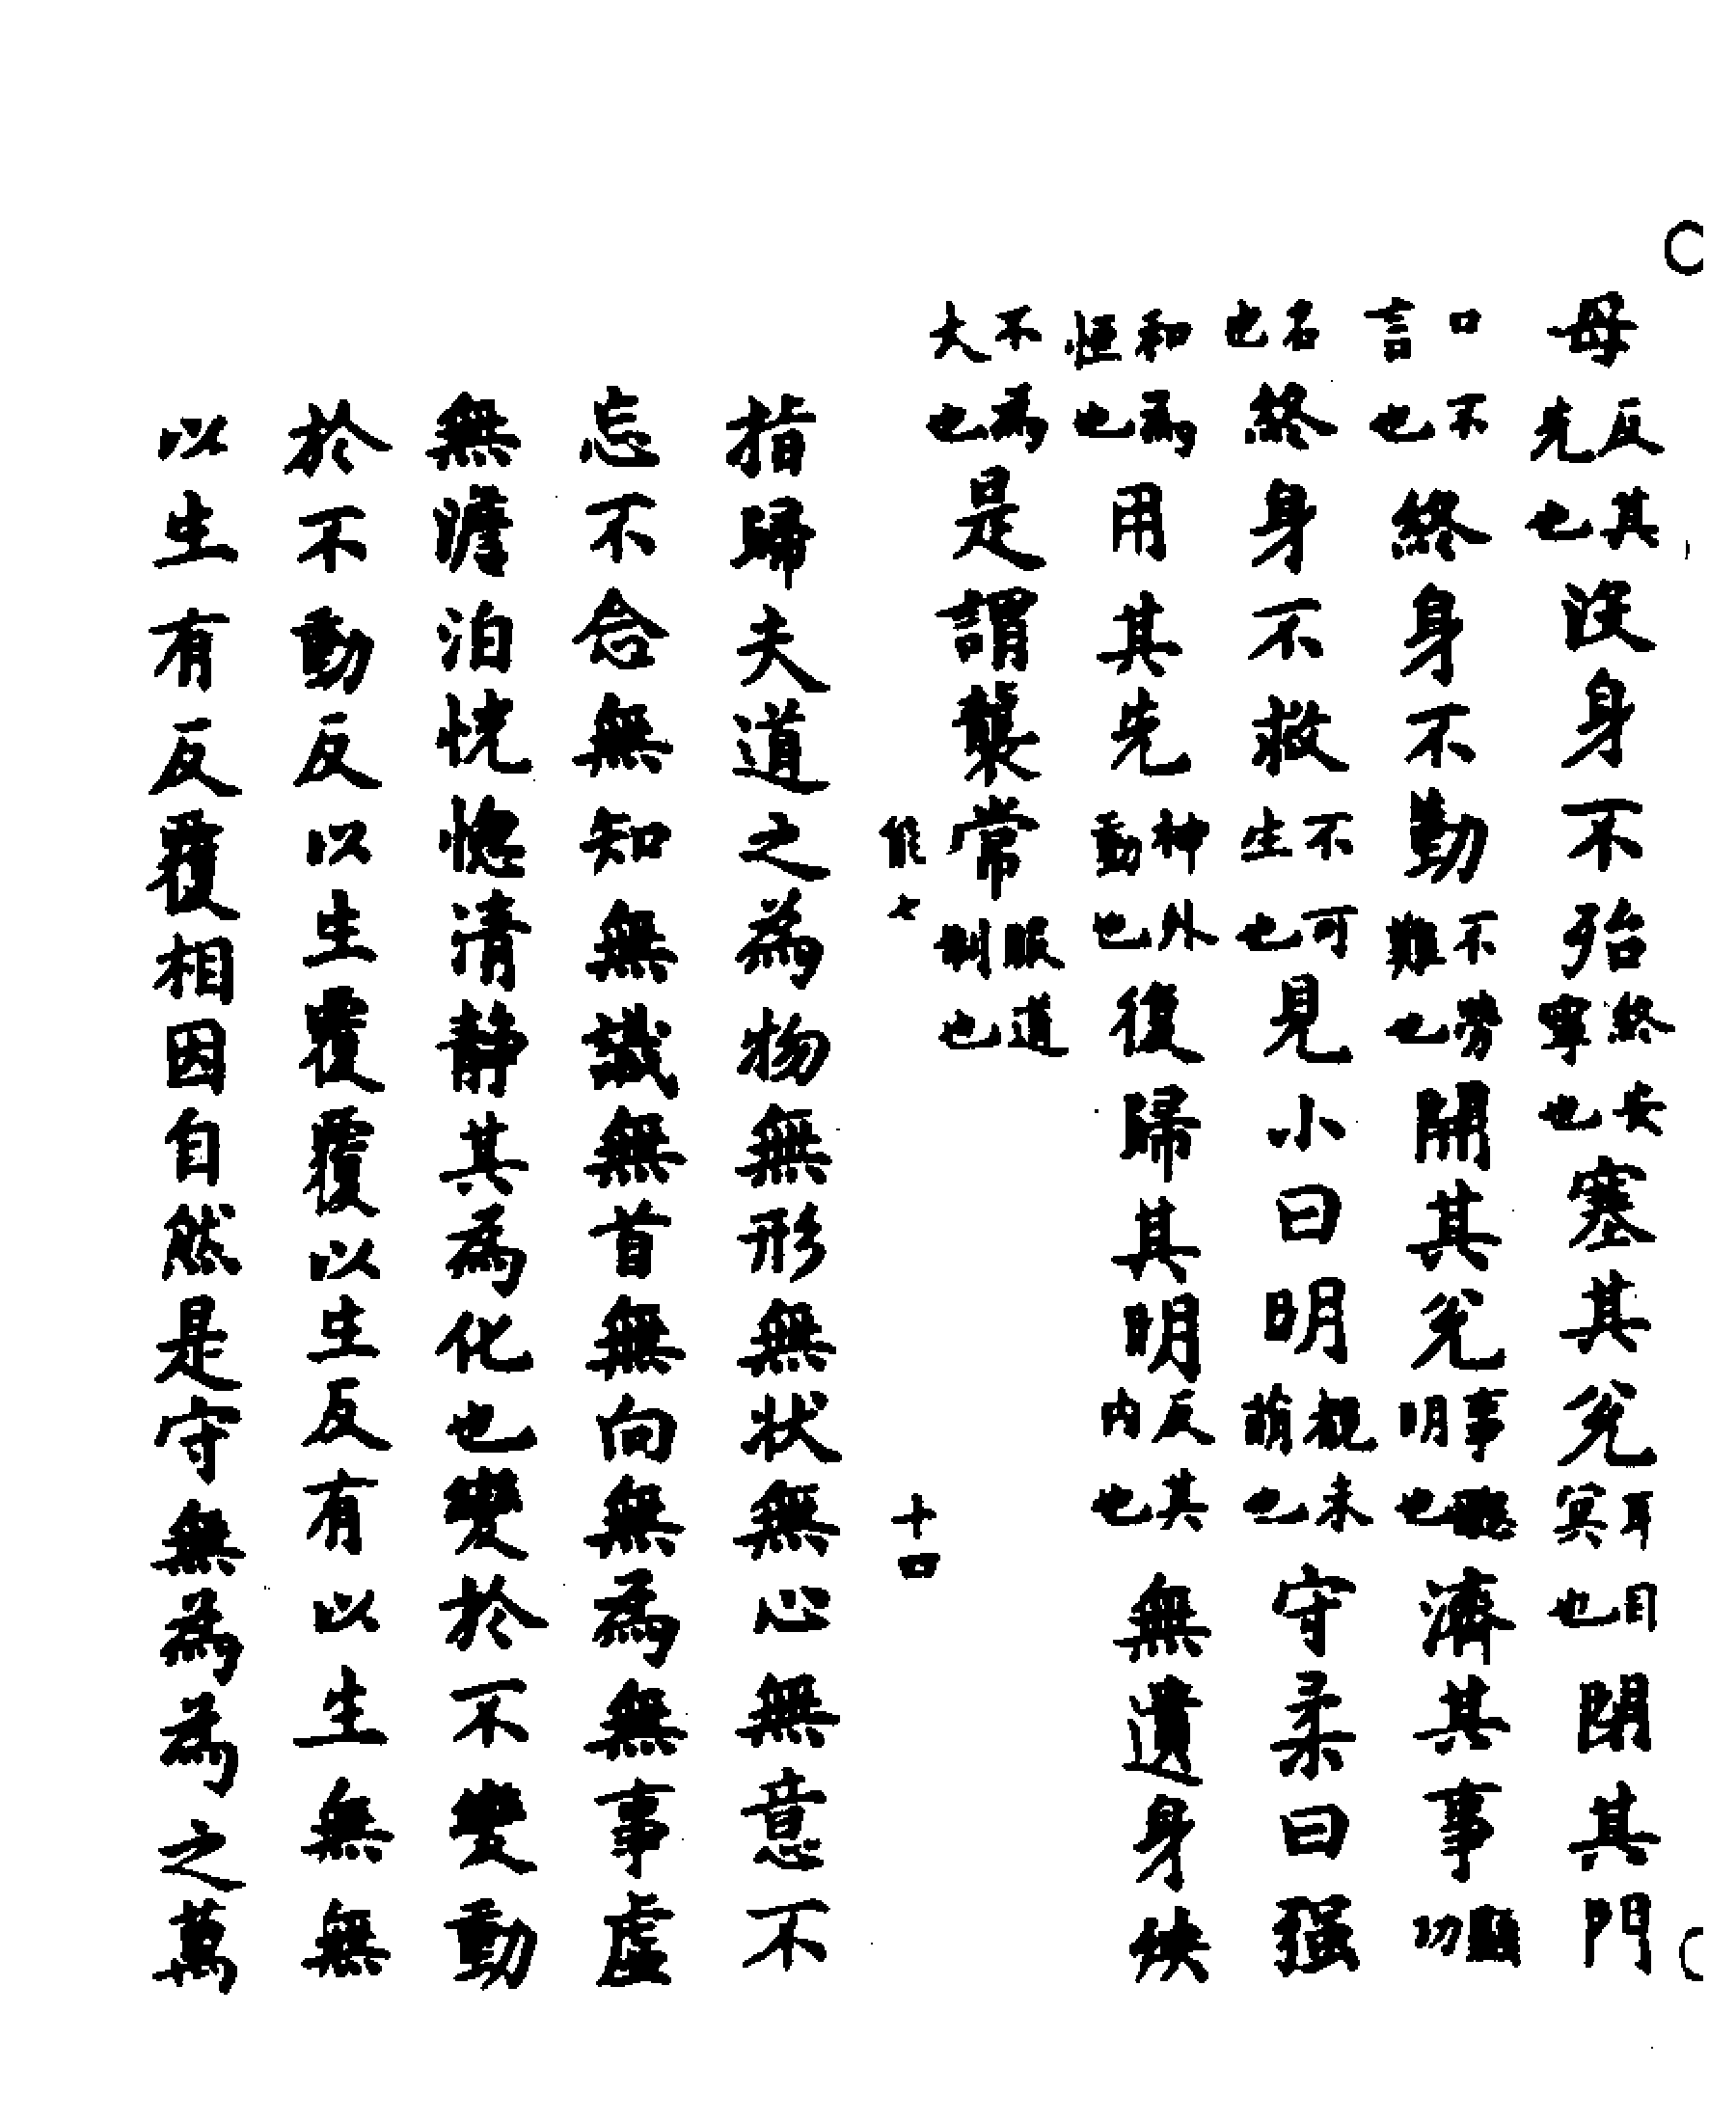 母反其先也没身不殆終安寧也塞其兊耳目冥也閉其門
口不言也終身不勤不勞難也開其兊事聰明也濟其事顯功
名也終身不救不可生也見小曰明覩未萌也守柔曰强
和為恒也用其先神外動也復歸其明反其内也無遺身殃
不為大也是謂襲常服道制也
能七 十四
指歸夫道之為物無形無状無心無意不
忘不念無知無識無首無向無為無事虛
無澹泊恍惚清静其為化也變於不變動
於不動反以生覆覆以生反有以生無無
以生有反覆相因自然是守無為為之萬